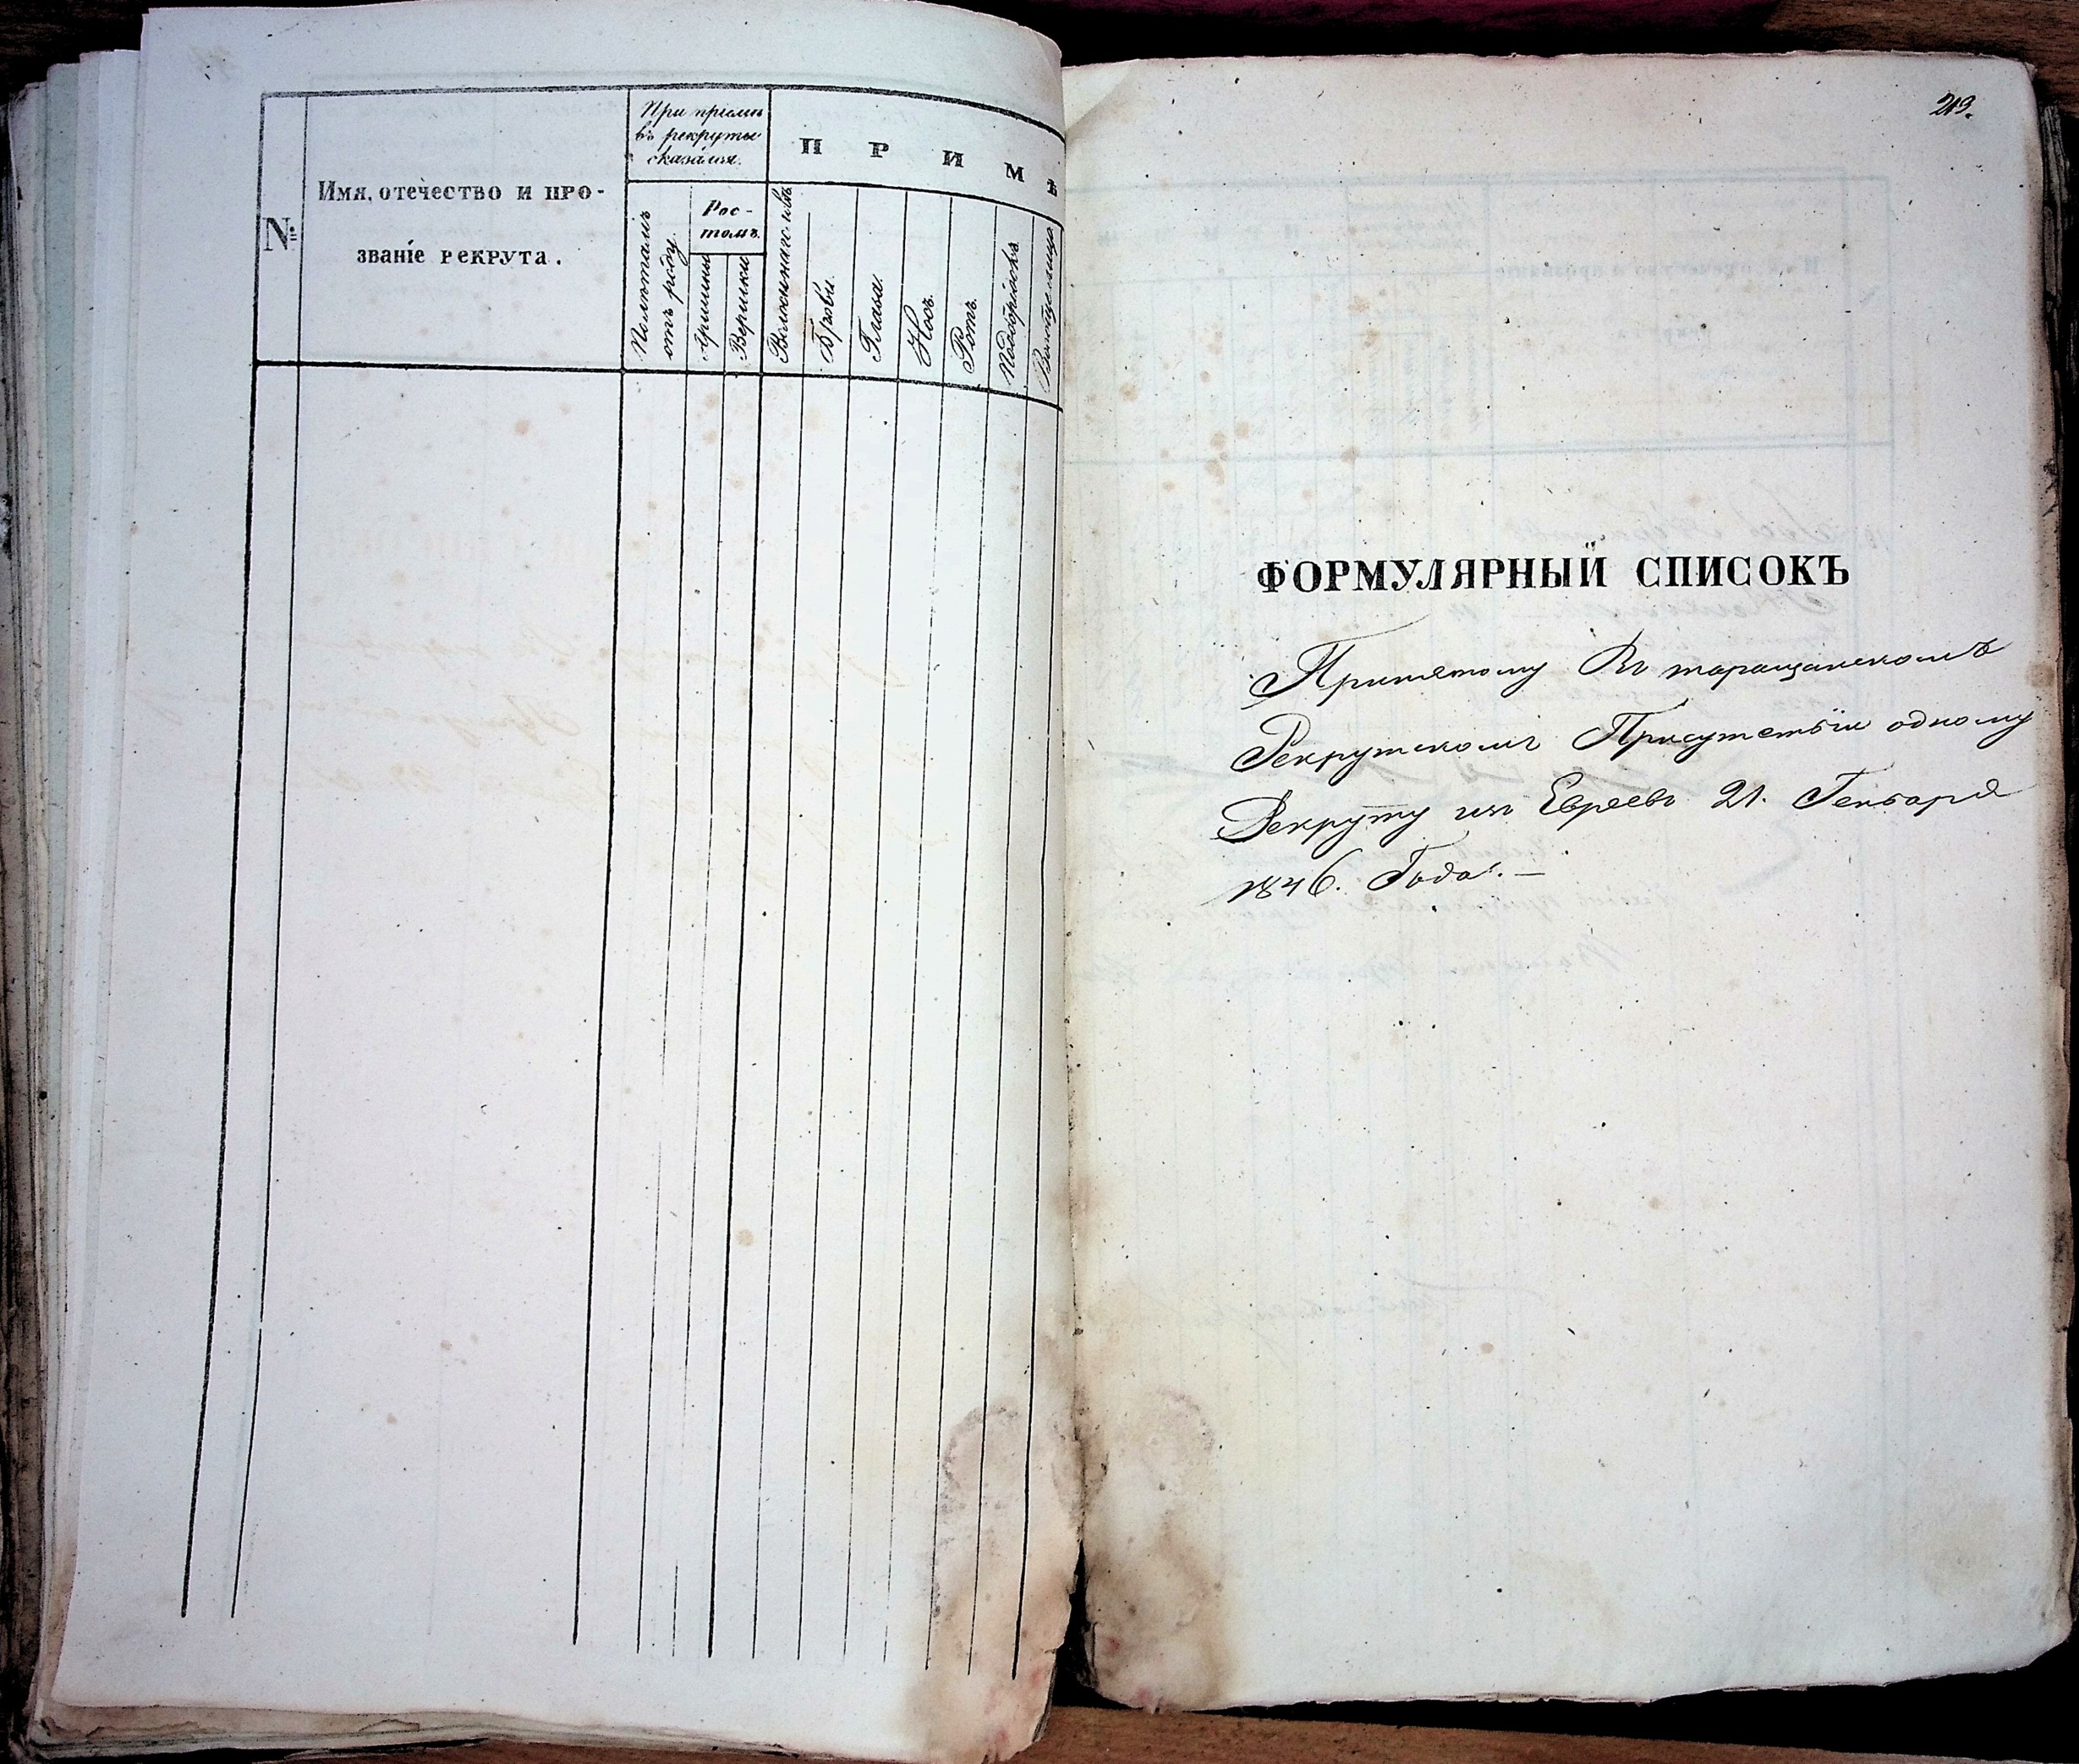 №
Имя, отечество и про-
званіе рекрута.
При пріемѣ
въ рекруты
сказался.
Полѣтамъ
отъ роду.
Рос-
томъ.
Аршины
Вершки
П Р И М Ѣ
Брови.
Глаза.
Носъ.
Ротъ.
Подбородокъ
213.
ФОРМУЛЯРНЫЙ СПИСОКЪ
Принятому Въ таращанскомъ
Рекрутскомъ Присутствіи одному
Рекруту изъ Евреевъ 21. Генваря
1846. Года. —